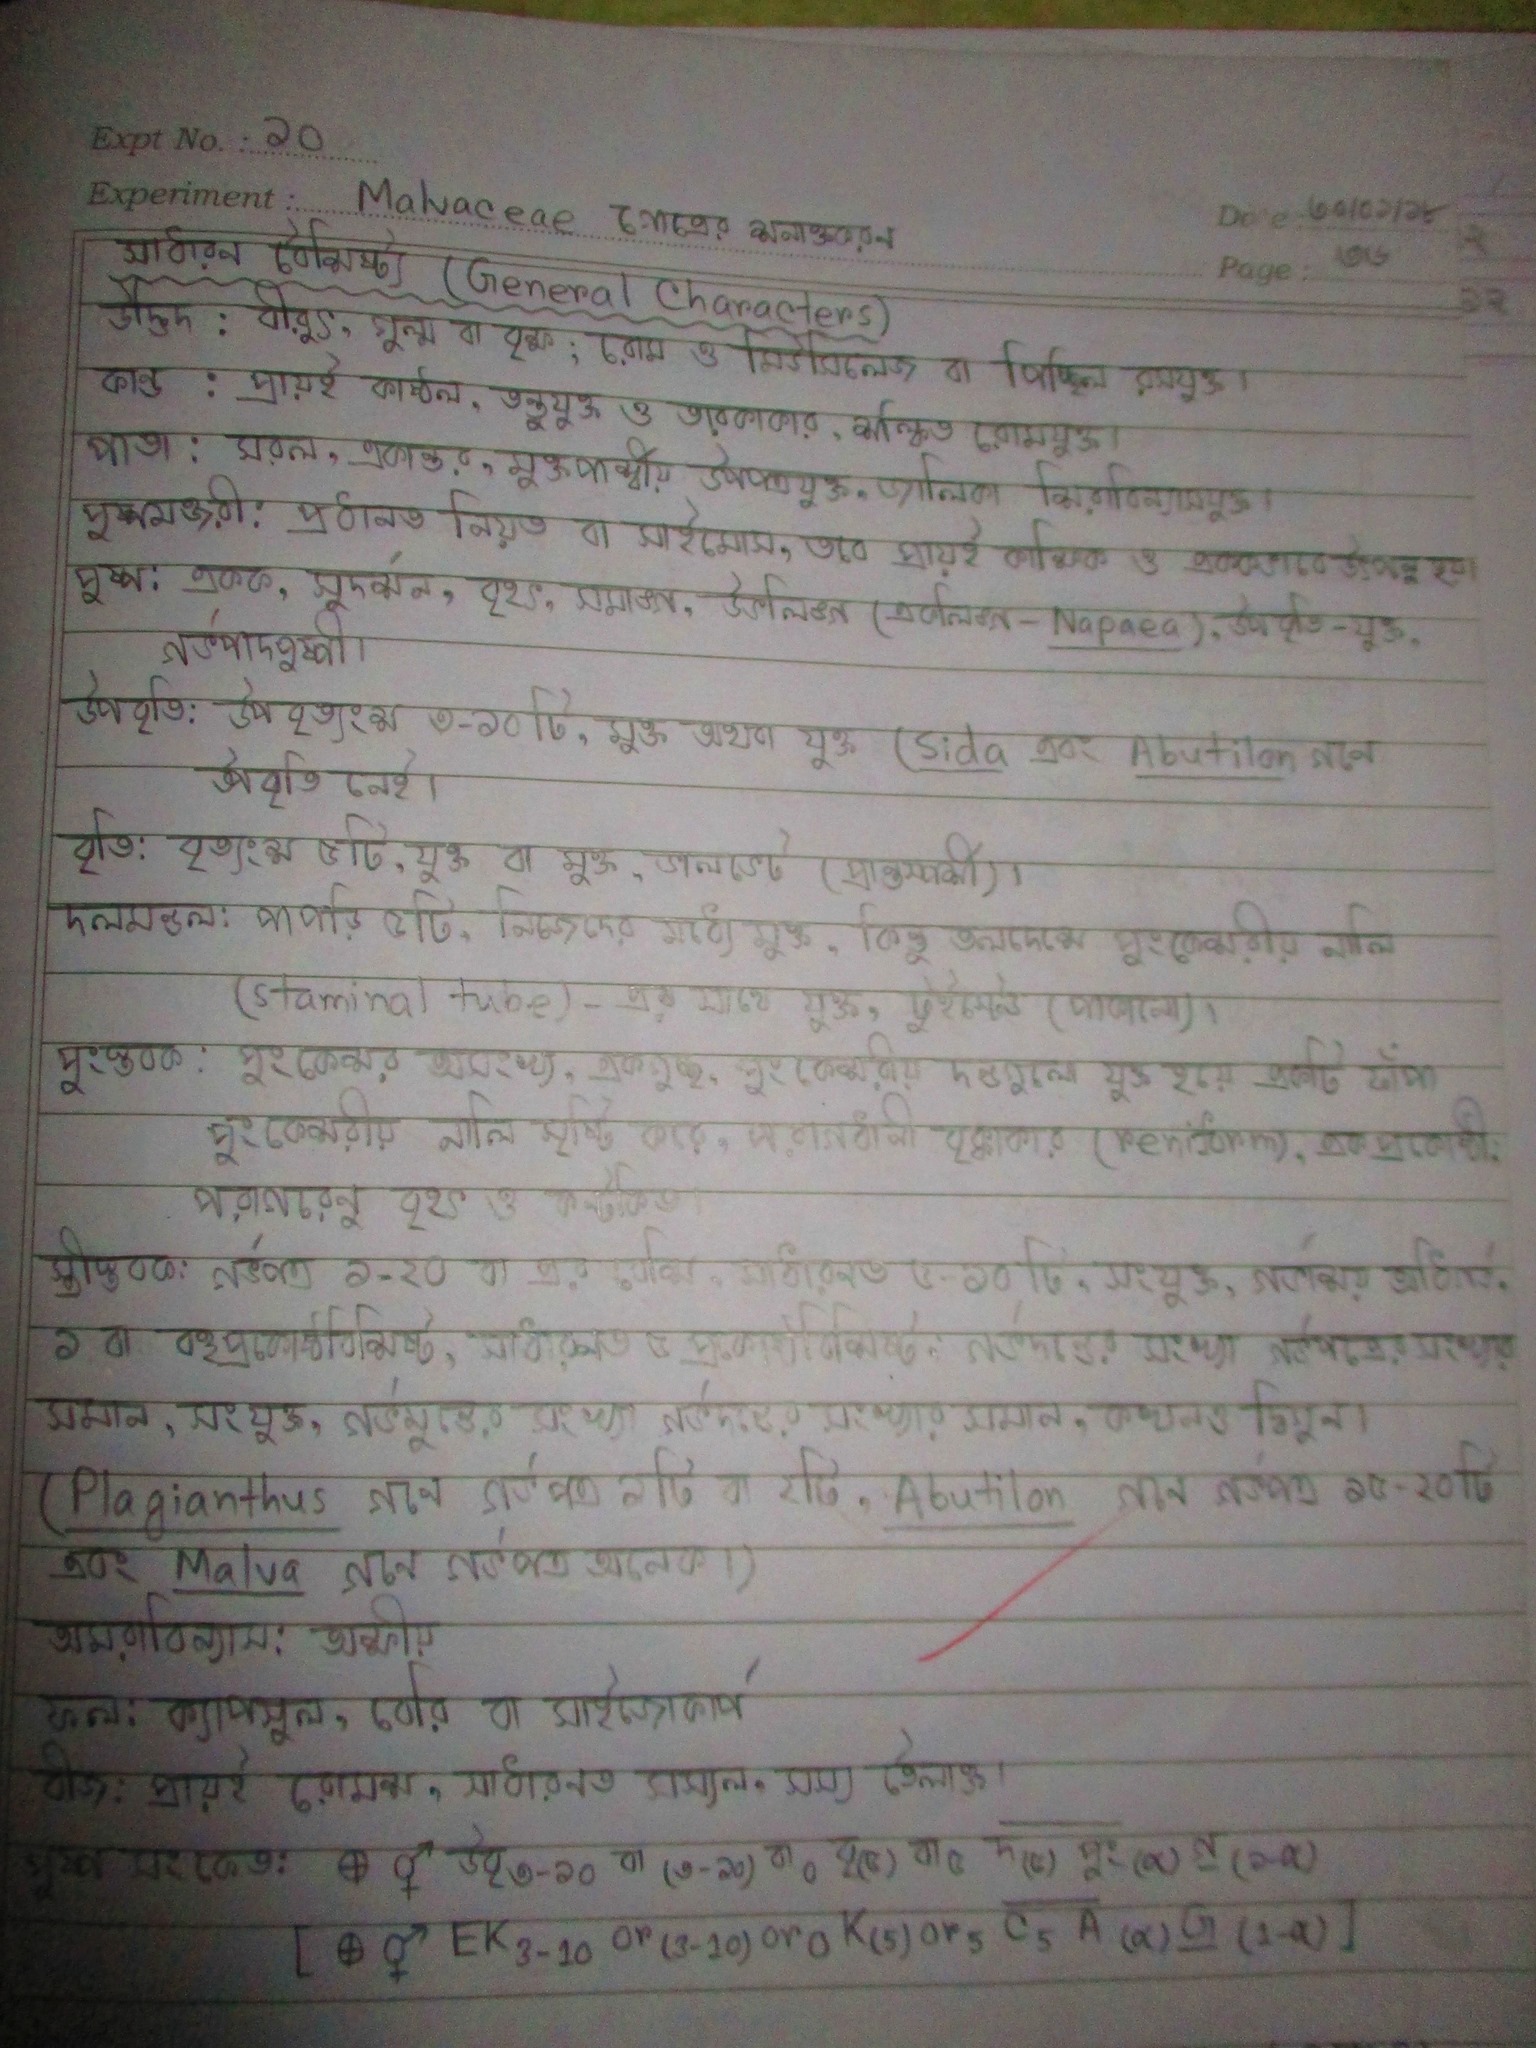 Expt No. : ১০
Experiment : Malvaceae গোত্রের শনাক্তকরণ
Date
Page :
সাধারন বৈশিষ্ট্য (General Characters)
উদ্ভিদ : বীরুৎ, গুল্ম বা বৃক্ষ; রোম ও মিউসিলেজ বা পিচ্ছিল রসযুক্ত।
কান্ড : প্রায়ই কাষ্ঠল, তন্তুযুক্ত ও তারকাকার, শল্কিত রোমযুক্ত।
পাতা : সরল, একান্তর, মুক্তপার্শ্বীয় উপপত্রযুক্ত, জালিকা শিরাবিন্যাসযুক্ত।
পুষ্পমঞ্জরী: প্রধানত নিয়ত বা সাইমোস, তবে প্রায়ই কাক্ষিক ও এককভাবে উৎপন্ন হয়।
পুষ্প: একক, সুদর্শন, বৃহৎ, সমাঙ্গ, উভলিঙ্গ (একলিঙ্গ - Napaea), উপবৃতি-যুক্ত,
গর্ভপাদপুষ্পী।
উপবৃতি: উপবৃত্যংশ ৩-১০টি, মুক্ত অথবা যুক্ত (Sida এবং Abutilon গনে
উপবৃতি নেই।
বৃতি: বৃত্যংশ ৫টি, যুক্ত বা মুক্ত, ভালভেট (প্রান্তস্পর্শী)।
দলমন্ডল: পাপড়ি ৫টি, নিজেদের মধ্যে মুক্ত, কিন্তু তলদেশে পুংকেশরীয় নালি
(staminal tube) - এর সাথে যুক্ত, টুইস্টেড (পাকানো)।
পুংস্তবক: পুংকেশর অসংখ্য, একগুচ্ছ, পুংকেশরীয় দন্ডগুলো যুক্ত হয়ে একটি ফাঁপা
পুংকেশরীয় নালি সৃষ্টি করে, পরাগধানী বৃক্কাকার (reniform), একপ্রকোষ্ঠী;
পরাগরেনু বৃহৎ ও কন্টকিত।
স্ত্রীস্তবক: গর্ভপত্র ১-২০ বা এর বেশি, সাধারনত ৫-১০টি, সংযুক্ত, গর্ভাশয় অধিগর্ভ,
১ বা বহুপ্রকোষ্ঠবিশিষ্ট, সাধারনত ৫ প্রকোষ্ঠবিশিষ্ট; গর্ভদন্ডের সংখ্যা গর্ভপত্রের সংখ্যার
সমান, সংযুক্ত, গর্ভমুন্ডের সংখ্যা গর্ভদন্ডের সংখ্যার সমান, কখনও দ্বিগুন।
(Plagianthus গনে গর্ভপত্র ১টি বা ২টি, Abutilon গনে গর্ভপত্র ১৫-২০টি
এবং Malva গনে গর্ভপত্র অনেক।)
অমরাবিন্যাস: অক্ষীয়
ফল: ক্যাপসুল, বেরি বা সাইজোকার্প
বীজ: প্রায়ই রোমশ, সাধারনত সস্যল, সস্য তৈলাক্ত।
পুষ্প সংকেত: ⊕ ⚥ উবৃ৩-১০ বা (৩-১০) বা ০ বৃ(৫) বা ৫ দ(৫) পুং(α) গ(১-α)
[ ⊕ ⚥ EK3-10 or (3-10) or 0 K(5) or 5 C5 A (α) G (1-α) ]